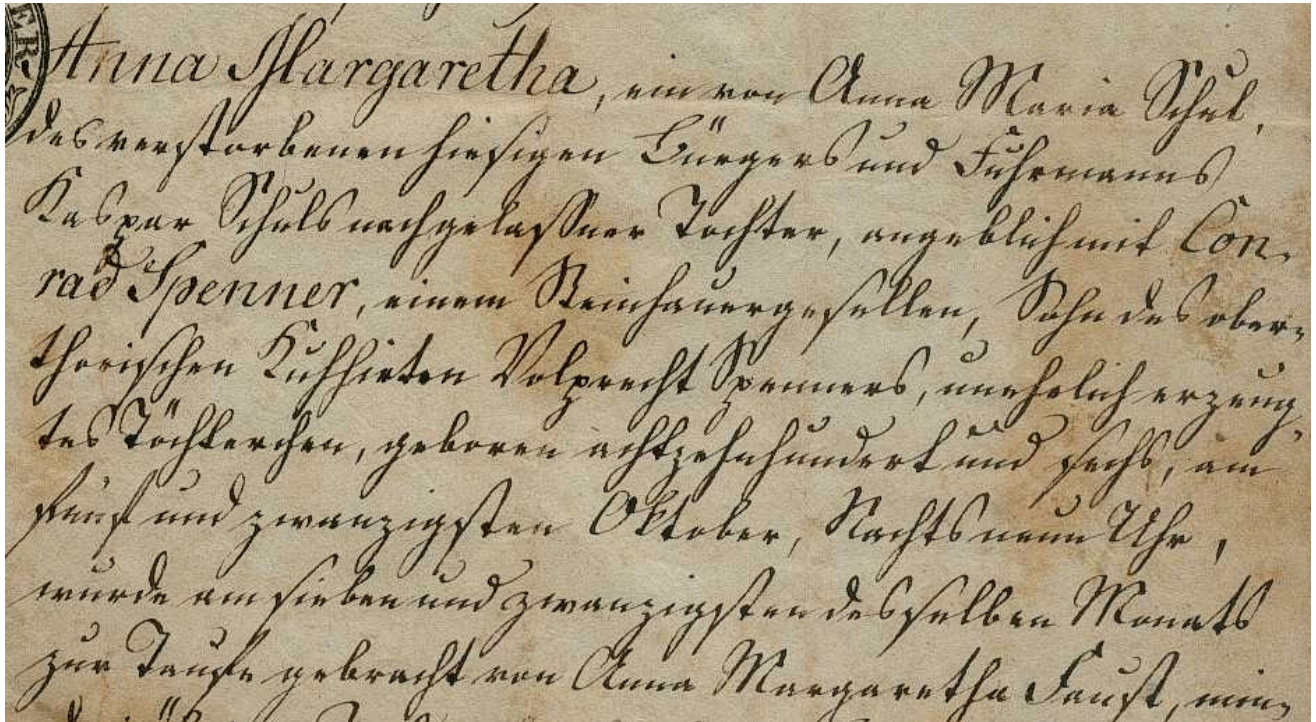 ER-
Anna Margaretha, ein von Anna Maria Schul,
des verstorbenen hiesigen Bürgers und Fuhrmanns
Kaspar Schuls nachgelassner Tochter, angeblich mit Con-
rad Spenner, einem Steinhauergesellen, Sohn des ober-
thorischen Kuhhirten Volprecht Spenners, unehelich erzeug-
tes Töchterchen, geboren achtzehnhundert und sechs, am
fünf und zwanzigsten Oktober, Nachts neun Uhr,
wurde am sieben und zwanzigsten desselben Monats
zur Taufe gebracht von Anna Margaretha Faust,